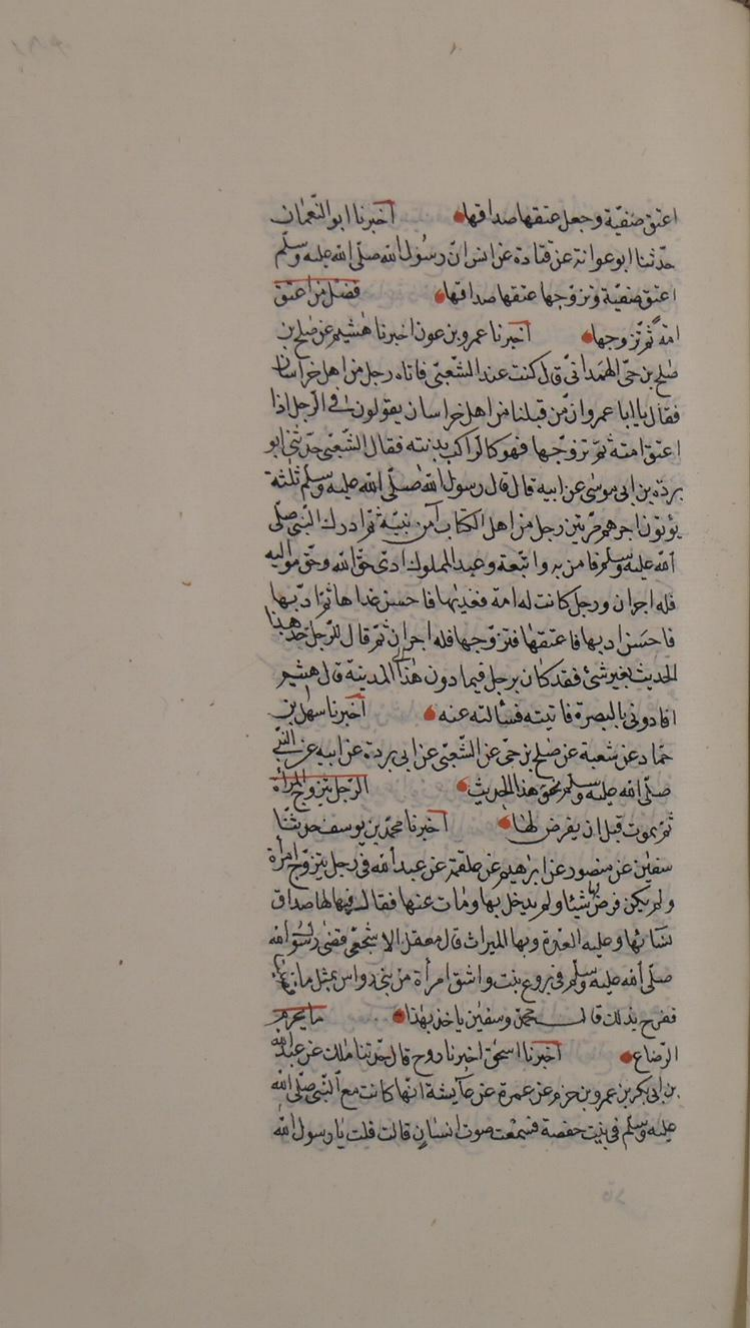 اعتق صفيّة وجعل عتقها صداقها اخبرنا ابو النّعمان
حدّثنا ابو عوانة عن قتادة عن انس انّ رسول الله صلّى الله عليه وسلّم
اعتق صفيّة وتزوّجها وجعل عتقها صداقها فضل من اعتق
امة ثمّ تزوجها اخبرنا عمرو بن عون اخبرنا هشيم عن صلح بن
صلح بن حيّ الهمدانىّ قال كنت عند الشّعبىّ فاتاه رجل من اهل خراسان
فقال يا ابا عمرو انّ من قبلنا من اهل خراسان يقولون فى الرّجل اذا
اعتق امته ثمّ تزوّجها فهو كالراكب بدنته فقال الشّعبى حدّثنى ابو
بردة بن ابى موسى عن ابيه قال قال رسول الله صلّى الله عليه وسلّم ثلثة
يؤتون اجرهم مرّتين رجل من اهل الكتاب آمن بنبيّه ثمّ ادرك النّبى صلّى
الله عليه وسلّم فامن به واتّبعه وعبد المملوك ادّى حقّ الله وحقّ مواليه
فله اجران ورجل كانت له امة فغذّيها فاحسن غداها ثمّ ادّبها
فاحسن ادبها فاعتقها فتزوّجها فله اجران ثمّ قال للرّجل خذ هذا
الحديث بغير شئ فقد كان يرحل فيما دون هذا الى المدينة قال هشيم
افادونى بالبصرة فاتيته فسألته عنه اخبرنا سهل بن
حمّاد عن شعبة عن صلح بن حىّ عن الشّعبىّ عن ابى بردة عن ابيه عن النّبىّ
صلّى الله عليه وسلّم نحو هذا الحديث الرّجل يتزوّج المرأة
ثمّ يموت قبل ان يفرض لها اخبرنا محمّد بن يوسف حدّثنا
سفين عن منصور عن ابرهيم عن علقمة عن عبد الله فى رجل يتزوّج امرأة
ولم يكن فرض لها شيئا ولم يدخل بها ومات عنها فقال فيها لها صداق
نسائها وعليه العدّة وبها الميراث قال معقل الاشجعىّ قضى رسول الله
صلّى الله عليه وسلّم فى بروع بنت واشق امرأة من بنى رواس بمثل ما
ففرح بذلك قال محمّد وسفين ياخذ بهذا ما يحرم
الرّضاع اخبرنا اسحق اخبرنا روح قال حدّثنا ملك عن عبد الله
بن ابى بكر بن عمرو بن حزم عن عمرة عن عآيشة انّها كانت مع النّبى صلّى الله
عليه وسلّم فى بيت حفصة فسمعت صوت انسان قالت قلت يا رسول الله